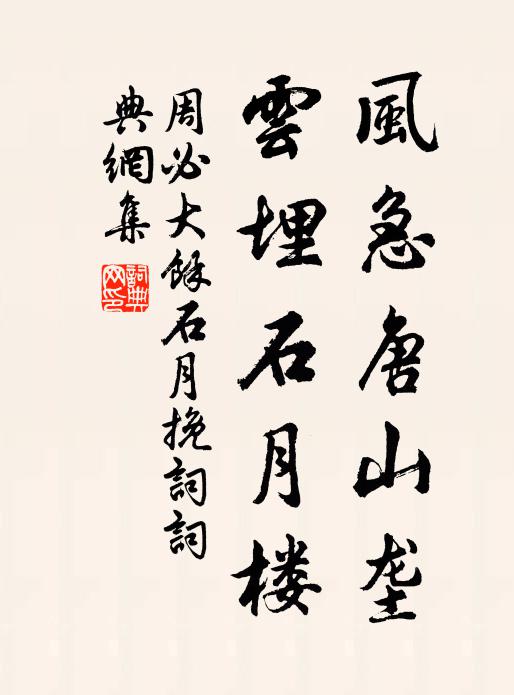 風急唐山垄
雲埋石月楼
周必大餘石月挽詞詞
典網集
詞典网印